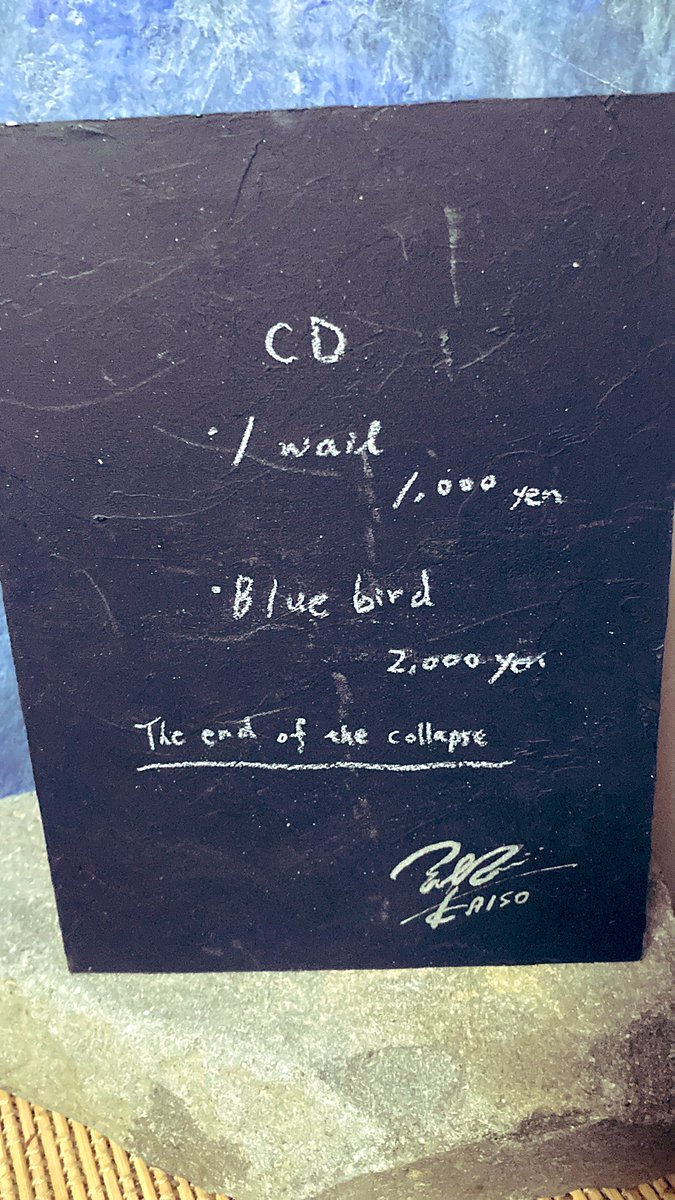 CD
・I wail
1,000 yen
・Blue bird
2,000 yen
The end of the collapse
KAISO